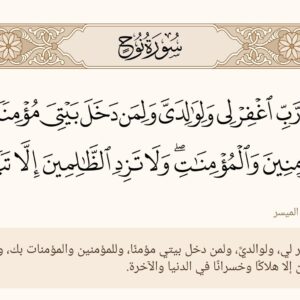 سُورَةُ نُوحٍ
رَبِّ ٱغۡفِرۡ لِي وَلِوَٰلِدَيَّ وَلِمَن دَخَلَ بَيۡتِيَ مُؤۡمِنٗا
وَٱلۡمُؤۡمِنَٰتِۖ وَلَا تَزِدِ ٱلظَّٰلِمِينَ إِلَّا
الميسر
لي، ولوالديَّ، ولمن دخل بيتي مؤمنًا، وللمؤمنين والمؤمنات بك،
إلا هلاكًا وخسرانًا في الدنيا والآخرة.